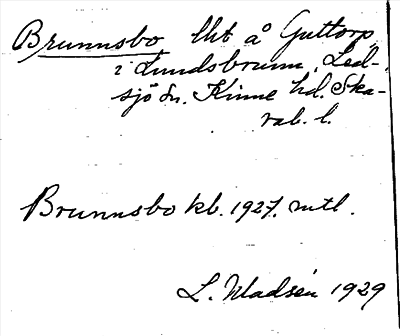 Brunnsbo lht å Guttorp
i Lundsbrunn, Led-
sjö sn. Kinne hd. Ska-
rab. l.
Brunnsbo kb. 1927. mtl.
L. Wadsén 1929